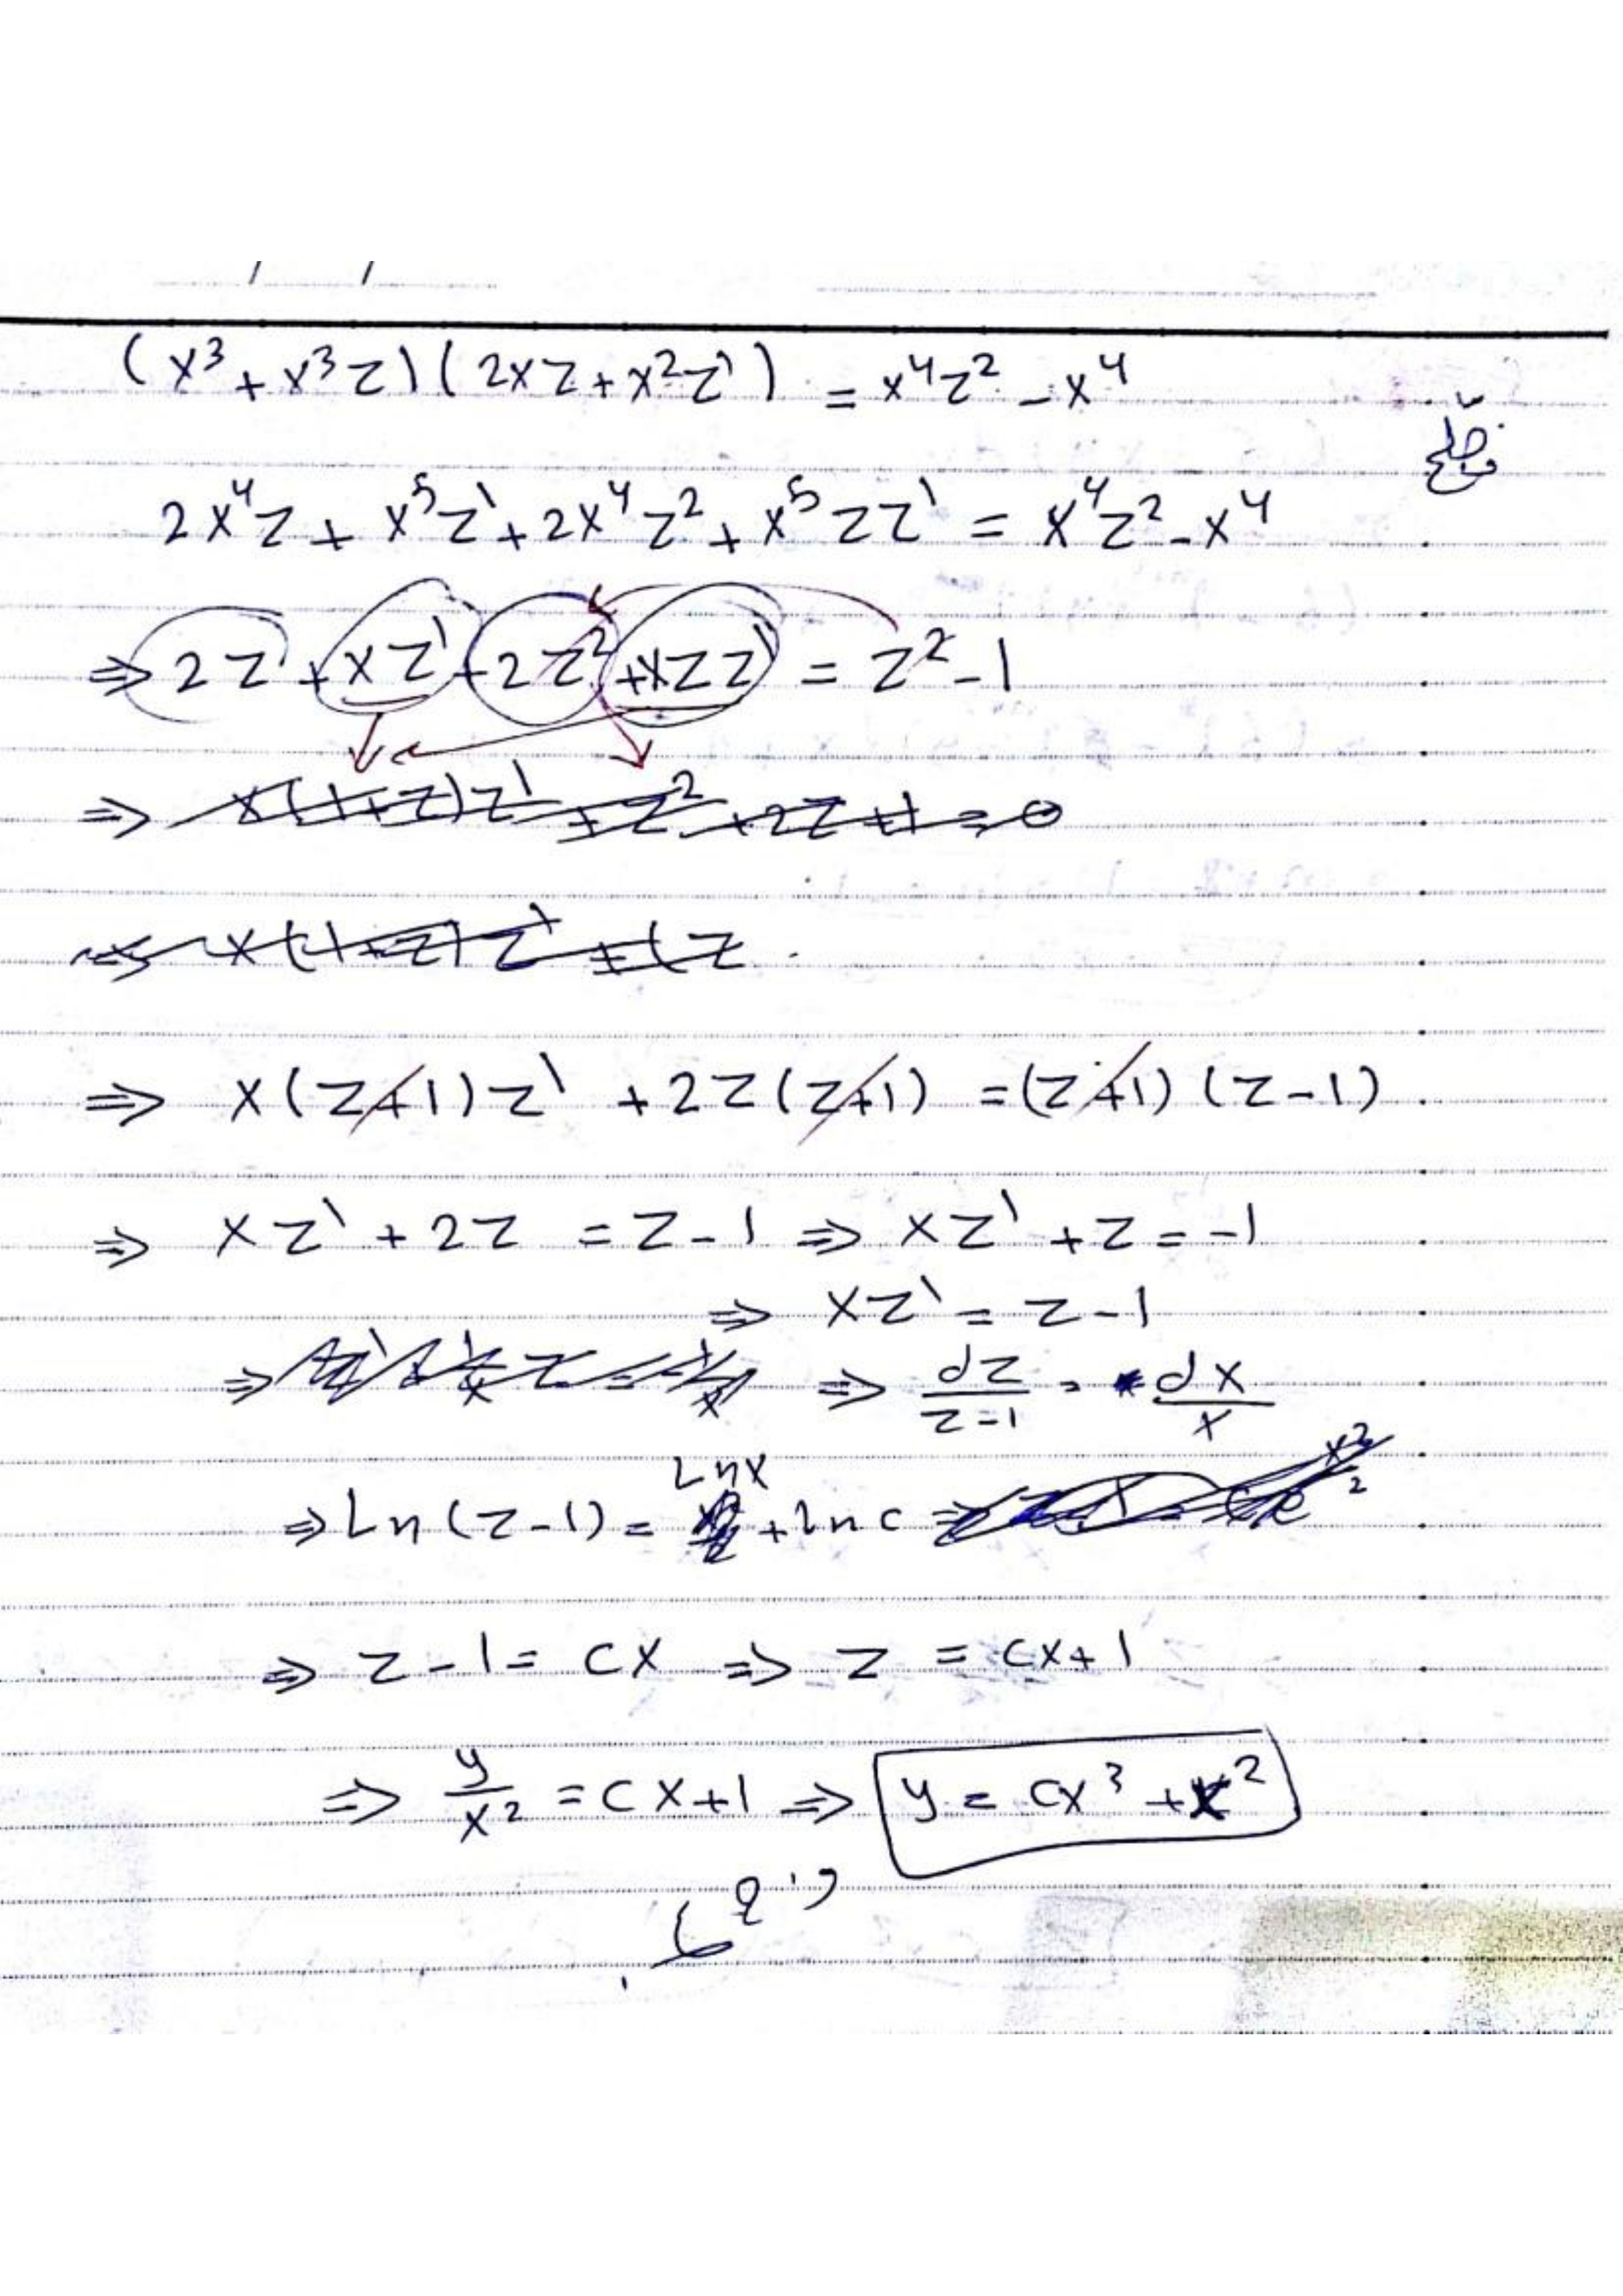 / /
(x³ + x³z)(2xz + x²z') = x⁴z² - x⁴
2x⁴z + x⁵z' + 2x⁴z² + x⁵zz' = x⁴z² - x⁴
⇒ 2z + xz' + 2z² + xzz' = z² - 1
⇒ x(1+z)z' + z² + 2z + 1 = 0
x(1+z)z' + (z
⇒ x(z+1)z' + 2z(z+1) = (z+1)(z-1)
⇒ xz' + 2z = z - 1 ⇒ xz' + z = -1
⇒ xz' = z - 1
⇒ dz/z-1 = dx/x
⇒ Ln(z-1) = Lnx + lnc
⇒ z - 1 = cx ⇒ z = cx+1
⇒ y/x² = cx+1 ⇒ y = cx³ + x²